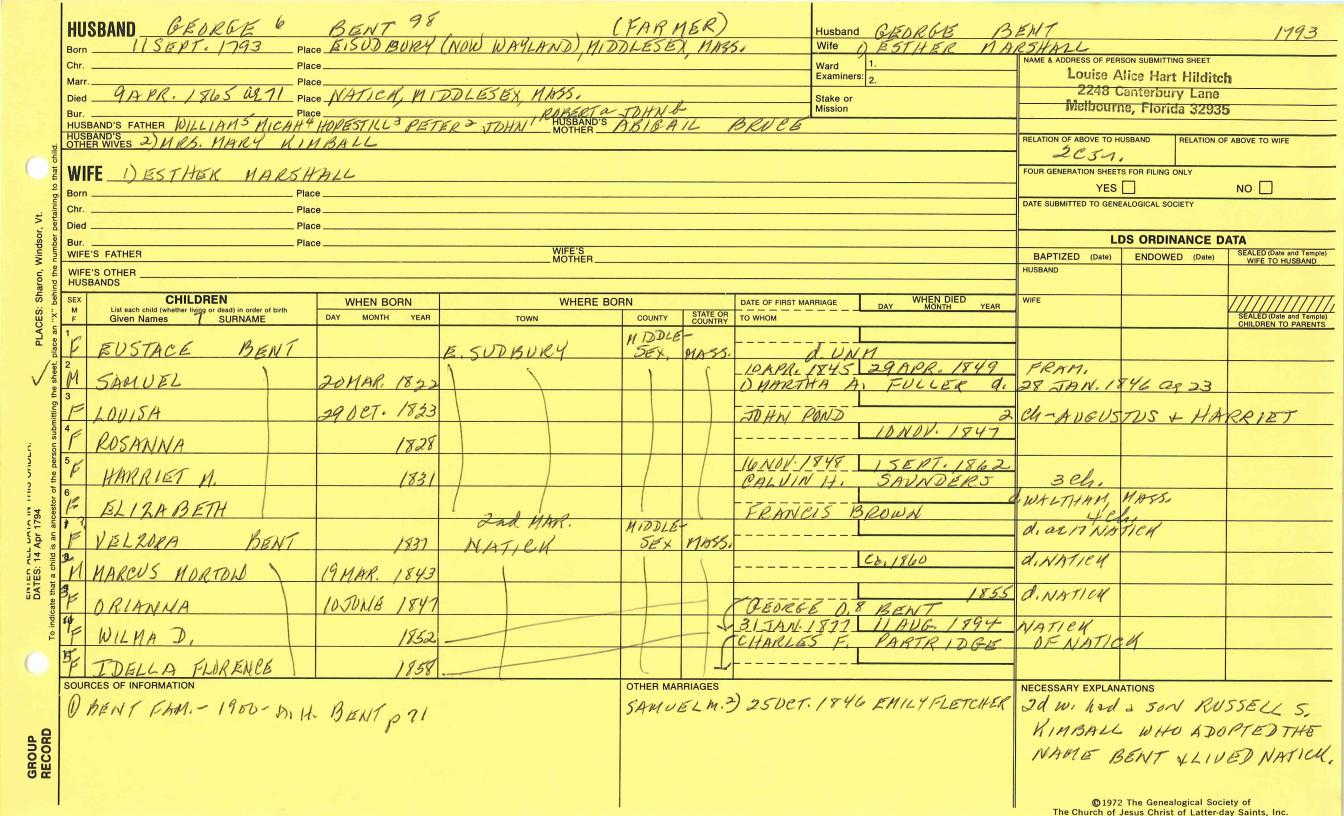 HUSBAND GEORGE 6 BENT 98 (FARMER)
Born 11 SEPT. 1793 Place E. SUDBURY (NOW WAYLAND), MIDDLESEX, MASS.
Chr. Place
Marr. Place
Died 9 APR. 1865 ae 71 Place NATICK, MIDDLESEX, MASS.
Bur. Place
HUSBAND'S FATHER WILLIAM5 MICAH4 HOPESTILL3 PETER2 JOHN1 ROBERTa JOHNb HUSBAND'S MOTHER ABIGAIL BRUCE
HUSBAND'S OTHER WIVES 2) MRS. MARY KIMBALL
WIFE 1) ESTHER MARSHALL
Born Place
Chr. Place
Died Place
Bur. Place
WIFE'S FATHER WIFE'S MOTHER
WIFE'S OTHER HUSBANDS
Husband GEORGE BENT 1793
Wife 1) ESTHER MARSHALL
Ward Examiners: 1. 2.
Stake or Mission
NAME & ADDRESS OF PERSON SUBMITTING SHEET
Louise Alice Hart Hilditch
2248 Canterbury Lane
Melbourne, Florida 32935
RELATION OF ABOVE TO HUSBAND RELATION OF ABOVE TO WIFE
FOUR GENERATION SHEETS FOR FILING ONLY
YES NO
DATE SUBMITTED TO GENEALOGICAL SOCIETY
LDS ORDINANCE DATA
BAPTIZED (Date) ENDOWED (Date) SEALED (Date and Temple) WIFE TO HUSBAND
HUSBAND
WIFE
SEALED (Date and Temple) CHILDREN TO PARENTS
SEX M F CHILDREN WHEN BORN WHERE BORN DATE OF FIRST MARRIAGE WHEN DIED
List each child (whether living or dead) in order of birth
Given Names 7 SURNAME DAY MONTH YEAR TOWN COUNTY STATE OR COUNTRY TO WHOM DAY MONTH YEAR
1 F EUSTACE BENT E. SUDBURY MIDDLE-SEX, MASS. d. UNM
2 M SAMUEL 20 MAR. 1822 10 APR. 1845 29 APR. 1849 FRAM.
1) MARTHA A. FULLER d. 28 JAN. 1846 ag 23
3 F LOUISA 29 OCT. 1823 JOHN POND 2 Ch - AUGUSTUS & HARRIET
4 F ROSANNA 1828 10 NOV. 1847
5 F HARRIET M. 1831 16 NOV. 1848 1 SEPT. 1862
CALVIN H. SAUNDERS 3 Ch.
6 F ELIZABETH FRANCIS BROWN d WALTHAM, MASS.
4 Ch.
2nd MAR.
F VELZORA BENT 1837 NATICK MIDDLE-SEX MASS. NATICK
M MARCUS MORTON 19 MAR. 1843 Ca. 1860 d. NATICK
F ORIANNA 10 JUNE 1847 1855 d. NATICK
GEORGE O.8 BENT
F WILMA D. 1852 31 JAN. 1877 11 AUG. 1894 NATICK
CHARLES F. PARTRIDGE OF NATICK
F IDELLA FLORENCE 1858
SOURCES OF INFORMATION
① BENT FAM. - 1900 - A. H. BENT p 71
OTHER MARRIAGES
SAMUEL M. 2) 25 OCT. 1846 EMILY FLETCHER
NECESSARY EXPLANATIONS
2d w. had a SON RUSSELL S.
KIMBALL WHO ADOPTED THE
NAME BENT & LIVED NATICK.
©1972 The Genealogical Society of
The Church of Jesus Christ of Latter-day Saints, Inc.
PLACES: Sharon, Windsor, Vt.
DATES: 14 Apr 1794
To indicate that a child is an ancestor of the person submitting the sheet, place an "X" behind the number pertaining to that child.
GROUP RECORD